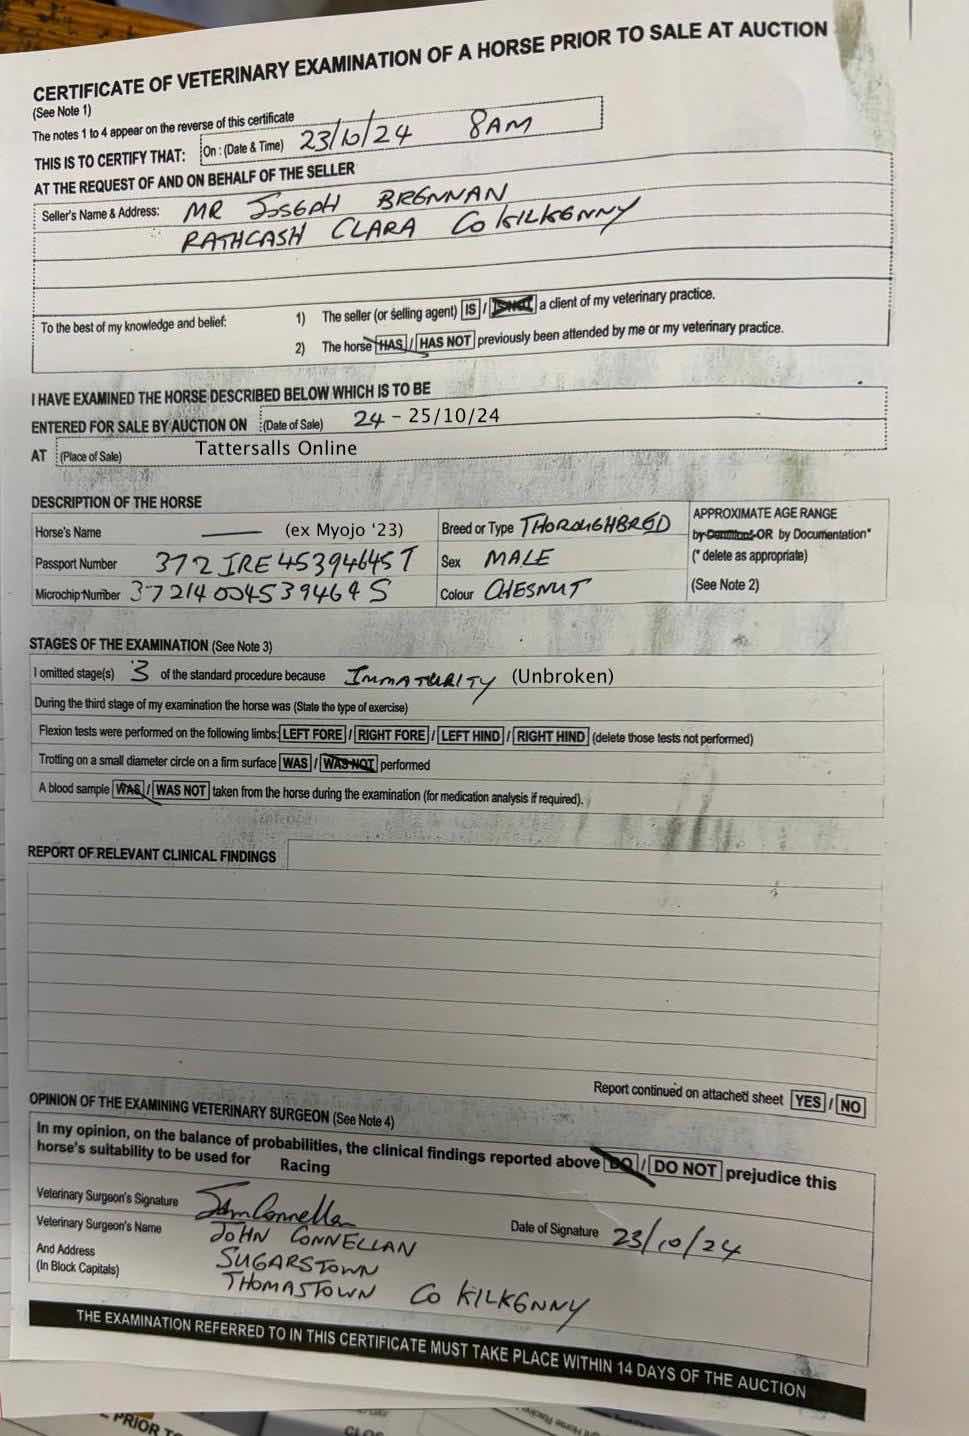 CERTIFICATE OF VETERINARY EXAMINATION OF A HORSE PRIOR TO SALE AT AUCTION
(See Note 1)
The notes 1 to 4 appear on the reverse of this certificate
THIS IS TO CERTIFY THAT: On : (Date & Time) 23/10/24 8AM
AT THE REQUEST OF AND ON BEHALF OF THE SELLER
Seller's Name & Address: MR JOSEPH BRENNAN
RATHCASH CLARA Co KILKENNY
To the best of my knowledge and belief: 1) The seller (or selling agent) IS / IS NOT a client of my veterinary practice.
2) The horse HAS / HAS NOT previously been attended by me or my veterinary practice.
I HAVE EXAMINED THE HORSE DESCRIBED BELOW WHICH IS TO BE
ENTERED FOR SALE BY AUCTION ON (Date of Sale) 24 - 25/10/24
AT (Place of Sale) Tattersalls Online
DESCRIPTION OF THE HORSE
Horse's Name —— (ex Myojo '23) Breed or Type THOROUGHBRED APPROXIMATE AGE RANGE
by Dentition/ OR by Documentation*
Passport Number 372 IRE 45394645T Sex MALE (* delete as appropriate)
Microchip Number 372140045394645 Colour CHESNUT (See Note 2)
STAGES OF THE EXAMINATION (See Note 3)
I omitted stage(s) 3 of the standard procedure because IMMATURITY (Unbroken)
During the third stage of my examination the horse was (State the type of exercise)
Flexion tests were performed on the following limbs: LEFT FORE / RIGHT FORE / LEFT HIND / RIGHT HIND (delete those tests not performed)
Trotting on a small diameter circle on a firm surface WAS / WAS NOT performed
A blood sample WAS / WAS NOT taken from the horse during the examination (for medication analysis if required).
REPORT OF RELEVANT CLINICAL FINDINGS
Report continued on attached sheet YES / NO
OPINION OF THE EXAMINING VETERINARY SURGEON (See Note 4)
In my opinion, on the balance of probabilities, the clinical findings reported above DO / DO NOT prejudice this
horse's suitability to be used for Racing
Veterinary Surgeon's Signature John Connellan
Date of Signature 23/10/24
Veterinary Surgeon's Name JOHN CONNELLAN
And Address SUGARSTOWN
(In Block Capitals) THOMASTOWN Co KILKENNY
THE EXAMINATION REFERRED TO IN THIS CERTIFICATE MUST TAKE PLACE WITHIN 14 DAYS OF THE AUCTION
PRIOR